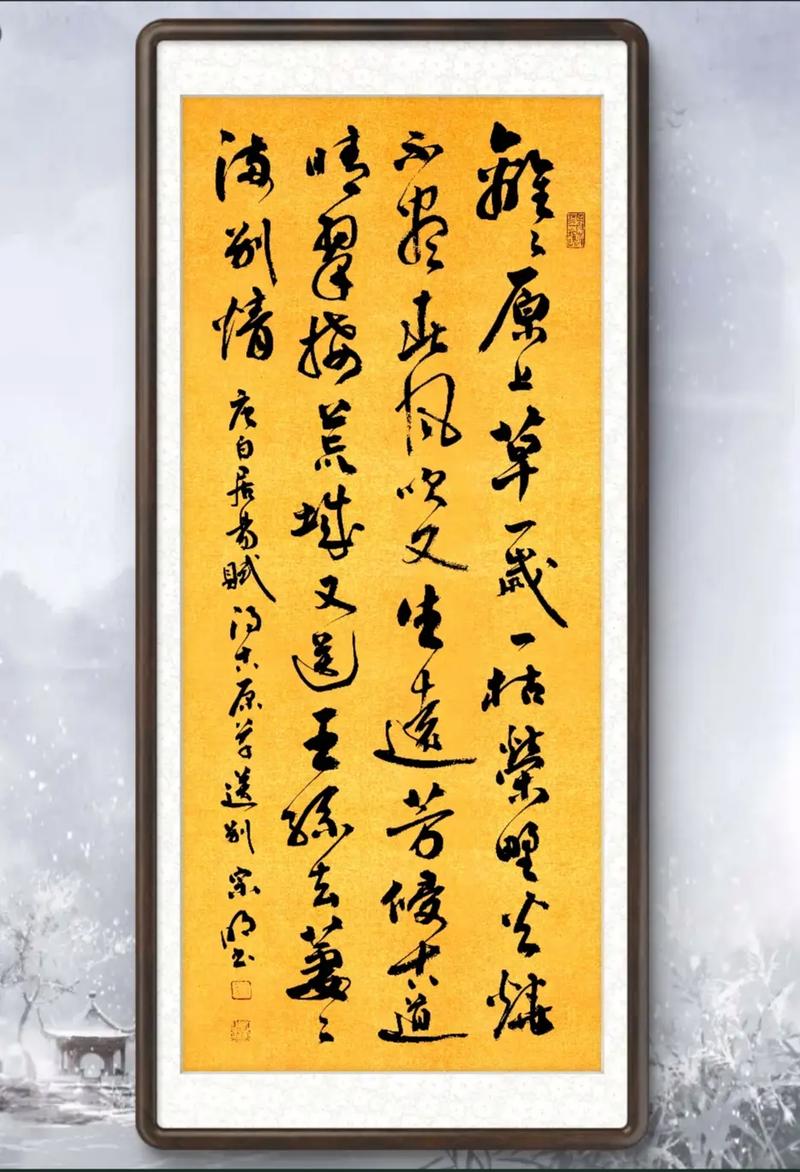 離〻原上草一歲一枯榮野火燒
不盡春風吹又生遠芳侵古道
晴翠接荒城又送王孫去萋〻
滿別情 唐白居易賦得古原草送別 宗明书